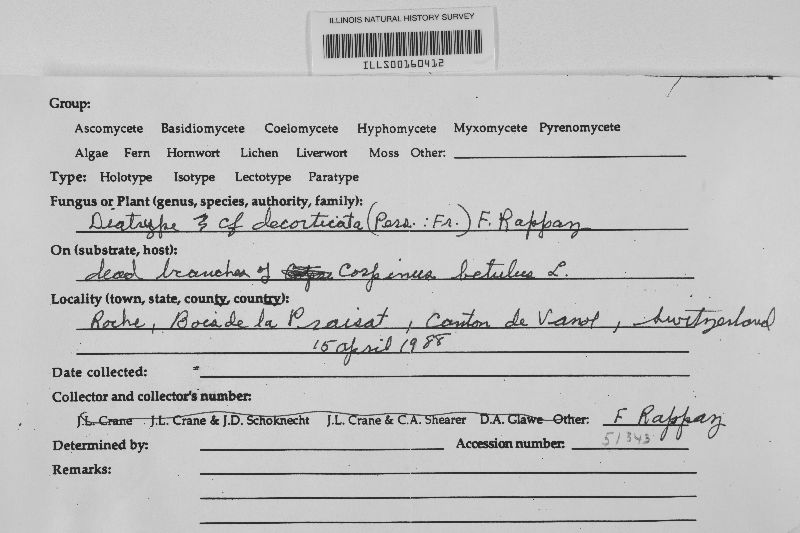 ILLINOIS NATURAL HISTORY SURVEY
ILLS00160412
Group:
Ascomycete Basidiomycete Coelomycete Hyphomycete Myxomycete Pyrenomycete
Algae Fern Hornwort Lichen Liverwort Moss Other:
Type: Holotype Isotype Lectotype Paratype
Fungus or Plant (genus, species, authority, family):
Diatrype cf decorticata (Pers. : Fr.) F. Rappaz
On (substrate, host):
dead branches of Carpinus betulus L.
Locality (town, state, county, country):
Roche, Bois de la Praisat, Canton de Vaud, Switzerland
15 April 1988
Date collected:
Collector and collector's number:
J.L. Crane J.L. Crane & J.D. Schoknecht J.L. Crane & C.A. Shearer D.A. Glawe Other: F Rappaz
Determined by: Accession number: 51343
Remarks: